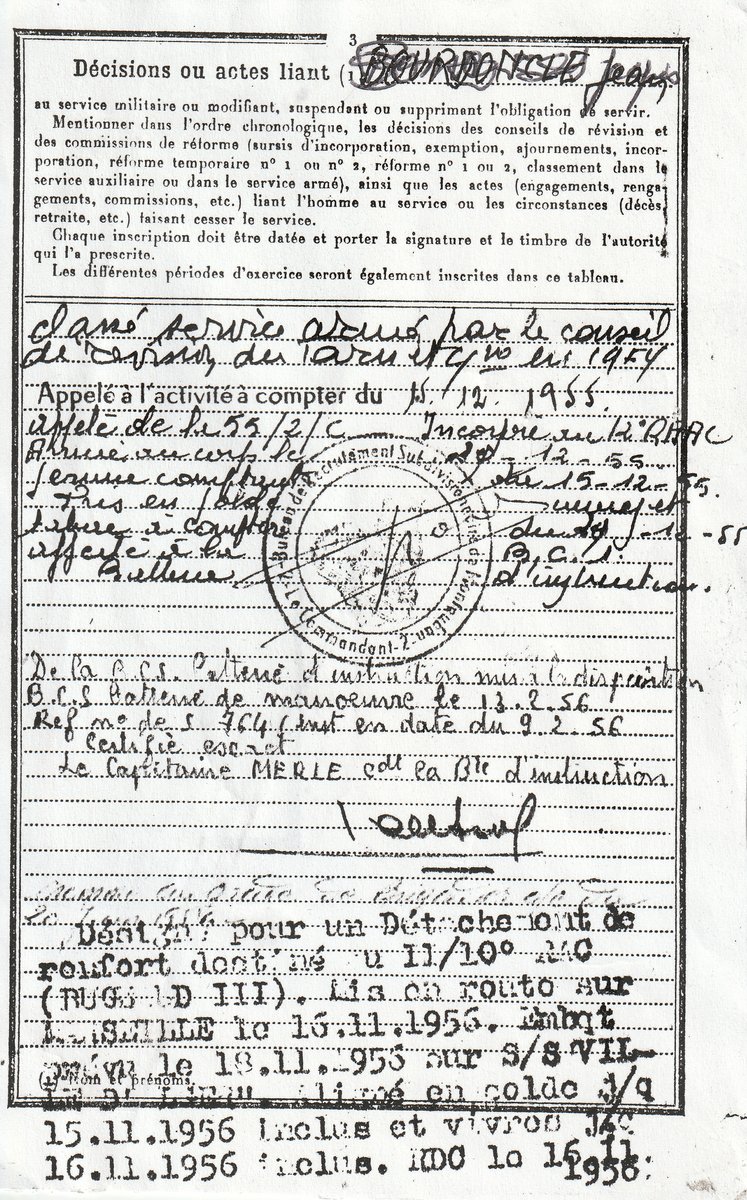 3
Décisions ou actes liant (1) BOURDONCLE Jean
au service militaire ou modifiant, suspendant ou supprimant l'obligation de servir.
Mentionner dans l'ordre chronologique, les décisions des conseils de révision et
des commissions de réforme (sursis d'incorporation, exemption, ajournements, incor-
poration, réforme temporaire n° 1 ou n° 2, réforme n° 1 ou 2, classement dans le
service auxiliaire ou dans le service armé), ainsi que les actes (engagements, renga-
gements, commissions, etc.) liant l'homme au service ou les circonstances (décès,
retraite, etc.) faisant cesser le service.
Chaque inscription doit être datée et porter la signature et le timbre de l'autorité
qui l'a prescrite.
Les différentes périodes d'exercice seront également inscrites dans ce tableau.
classé service armé par le conseil
de révision du Tarn et Gne en 1954
Appelé à l'activité à compter du 15.12.1955.
appelé de la 55/2/C Incorporé au
Arrivé au corps le -12-55
du 15-12-55.
à compter du -12-55
affecté à la B.C.S.
Batterie d'instruction.
Bureau de Recrutement Subdivisionnaire de
Le Commandant
De la B.C.S. batterie d'instruction mis à la disposition
B.C.S batterie de manoeuvre le 13.2.56
Ref n° de S 764/Inst en date du 9.2.56
Certifié exact
Le Capitaine MERLE cdt la Bie d'instruction
Désigné pour un Détachement de
renfort destiné au II/10° RAC
(BUGEAUD III). Mis en route sur
MARSEILLE le 16.11.1956. Embqt
prévu le 18.11.1956 sur S/S VIL-
(1) Nom et prénoms.
LE D' Aligné en solde J/q
15.11.1956 inclus et vivres J/q
16.11.1956 inclus. RDC le 16.11.
1956.